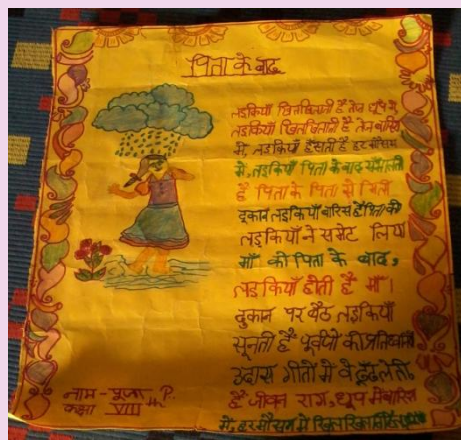 पिता के बाद
लड़कियाँ खिलखिलाती हैं तेज धूप में
लड़कियाँ खिलखिलाती हैं तेज बारिश
में, लड़कियाँ हँसती हैं हर मौसम
में, लड़कियाँ पिता के बाद सँभालती
हैं पिता के पिता से मिली
दूकान लड़कियाँ वारिस हैं पिता की
लड़कियों ने समेट लिया
माँ को पिता के बाद,
लड़कियाँ होती हैं माँ।
दुकान पर बैठ लड़कियाँ
सुनती हैं पूर्वजों की प्रतिध्वनि
उदास गीतों में वे ढूँढ लेती
हैं जीवन राग, धूप में बारिश
में, हर मौसम में
नाम - पूजा
कक्षा VIII